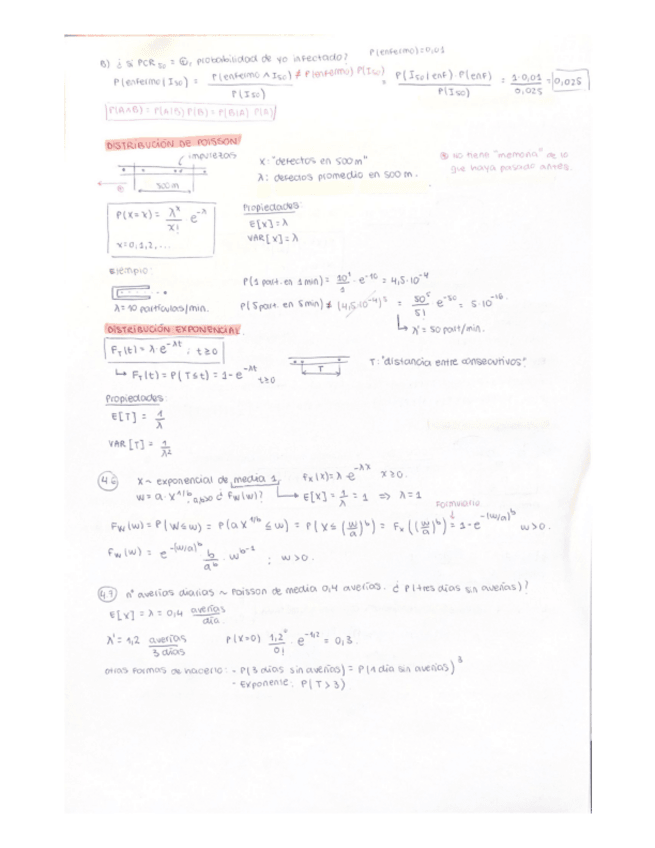 B) ¿ si PCR50 = ⊕, probabilidad de yo infectado? P(enfermo)=0,01
P(enfermo | I50) = P(enfermo ∧ I50) / P(I50) ≠ P(enfermo) P(I50) = P(I50|enf) · P(enf) / P(I50) = 1·0,01 / 0,025 = 0,025
P(A∧B) = P(A|B) P(B) = P(B|A) P(A)
DISTRIBUCIÓN DE POISSON
impurezas
500 m
X: "defectos en 500 m"
λ: defectos promedio en 500 m.
no tiene "memoria" de lo
que haya pasado antes.
P(X=x) = λ^x / x! · e^-λ
x=0,1,2,...
Propiedades:
E[X]=λ
VAR[X]=λ
Ejemplo:
λ=10 partículas/min.
P(1 part. en 1 min) = 10^1 / 1 · e^-10 = 4,5·10^-4
P(5 part. en 5 min) ≠ (4,5·10^-4)^5 = 50^5 / 5! e^-50 = 5·10^-16.
↳ λ' = 50 part/min.
DISTRIBUCIÓN EXPONENCIAL.
fT(t) = λ·e^-λt ; t≥0
↳ FT(t) = P(T≤t) = 1-e^-λt t≥0
T
T: "distancia entre consecutivos".
Propiedades:
E[T] = 1/λ
VAR[T] = 1/λ²
4.6 X ~ exponencial de media 1, fX(x)=λ·e^-λx x≥0.
W = a·X^1/b, ¿ fW(w)? ↳ E[X] = 1/λ = 1 ⇒ λ=1
Formulario
FW(w) = P(W≤w) = P(aX^1/b ≤ w) = P(X ≤ (w/a)^b) = FX((w/a)^b) = 1-e^-(w/a)^b w>0.
fW(w) = e^-(w/a)^b b/a^b · w^b-1 ; w>0.
4.7 nº averías diarias ~ Poisson de media 0,4 averías. ¿ P(tres días sin averías)?
E[X] = λ = 0,4 averías/día
λ' = 1,2 averías / 3 días P(X=0) 1,2^0 / 0! · e^-1,2 = 0,3.
otras formas de hacerlo: - P(3 días sin averías) = P(1 día sin averías)^3
- Exponente: P(T>3)